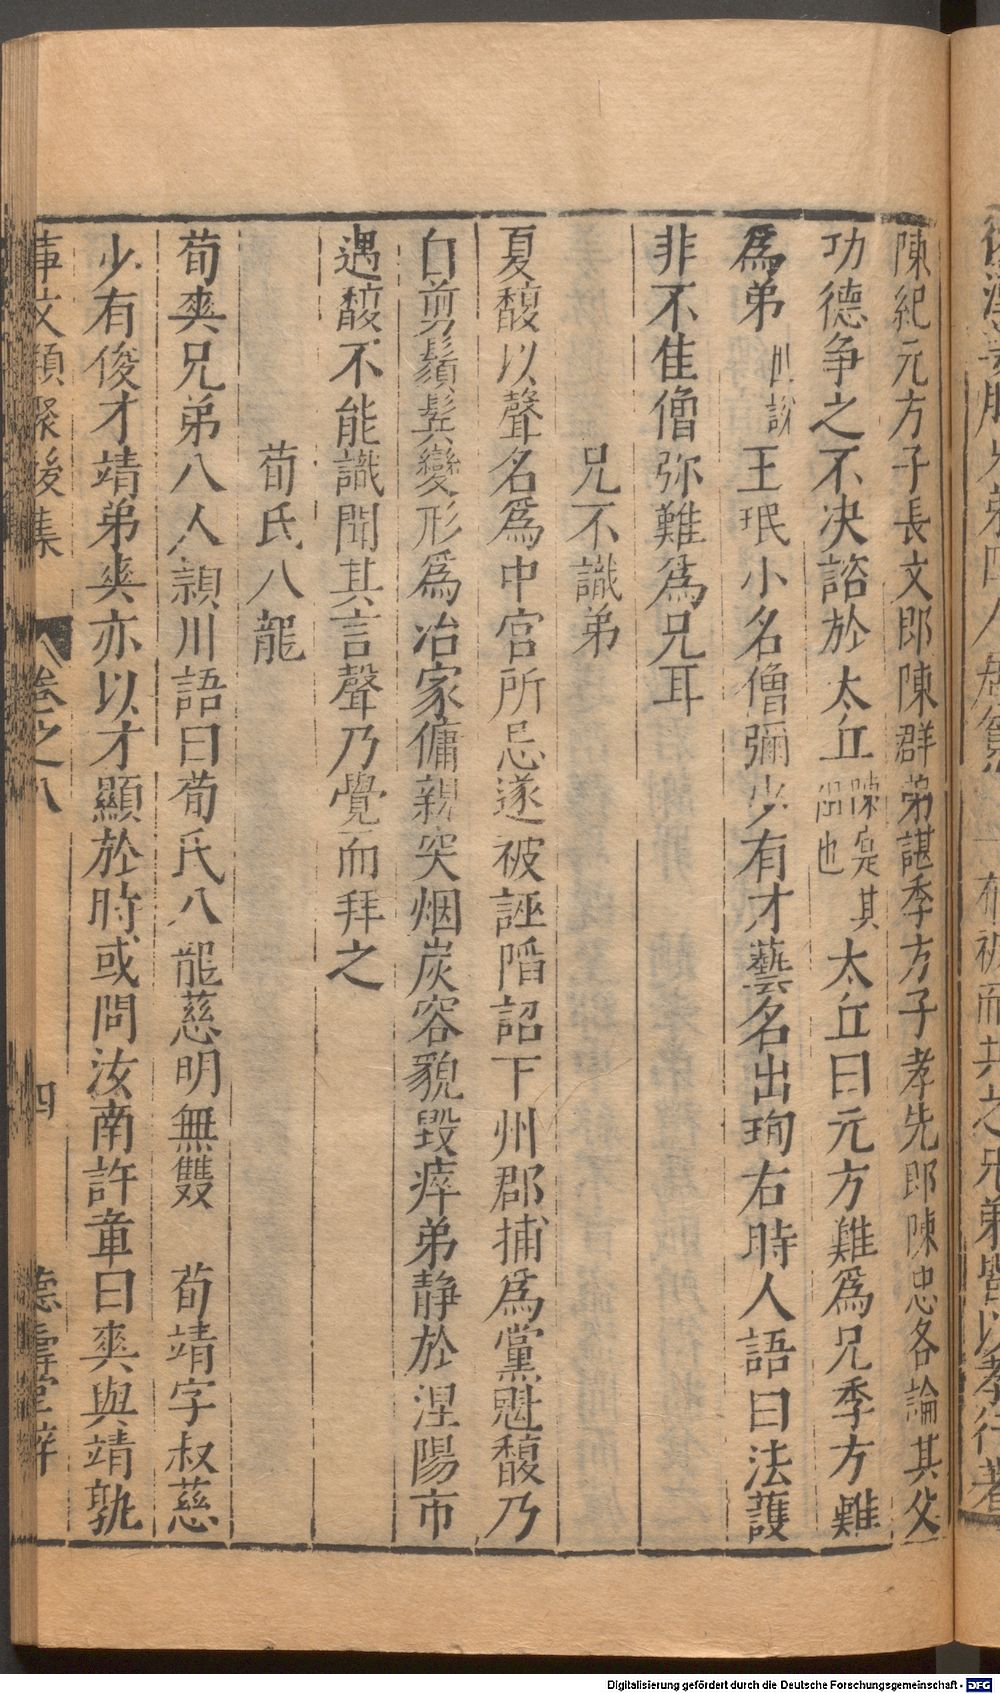 陳紀元方子長文郎陳群弟諶季方子孝先郎陳忠各論其父
功德争之不決諮於太丘陳寔其祖也太丘曰元方難爲兄季方難
爲弟世說王珉小名僧彌少有才藝名出珣右時人語曰法護
非不佳僧弥難爲兄耳
兄不識弟
夏馥以聲名爲中官所忌遂被誣䧟詔下州郡捕爲黨魁馥乃
自剪鬚髮變形爲冶家傭親突烟炭容貌毀瘁弟静於涅陽市
遇馥不能識聞其言聲乃覺而拜之
荀氏八龍
荀爽兄弟八人潁川語曰荀氏八龍慈明無雙 荀靖字叔慈
少有俊才靖弟爽亦以才顯於時或問汝南許章曰爽與靖孰
事文類聚後集 卷之八 四 德壽堂梓
Digitalisierung gefördert durch die Deutsche Forschungsgemeinschaft - DFG